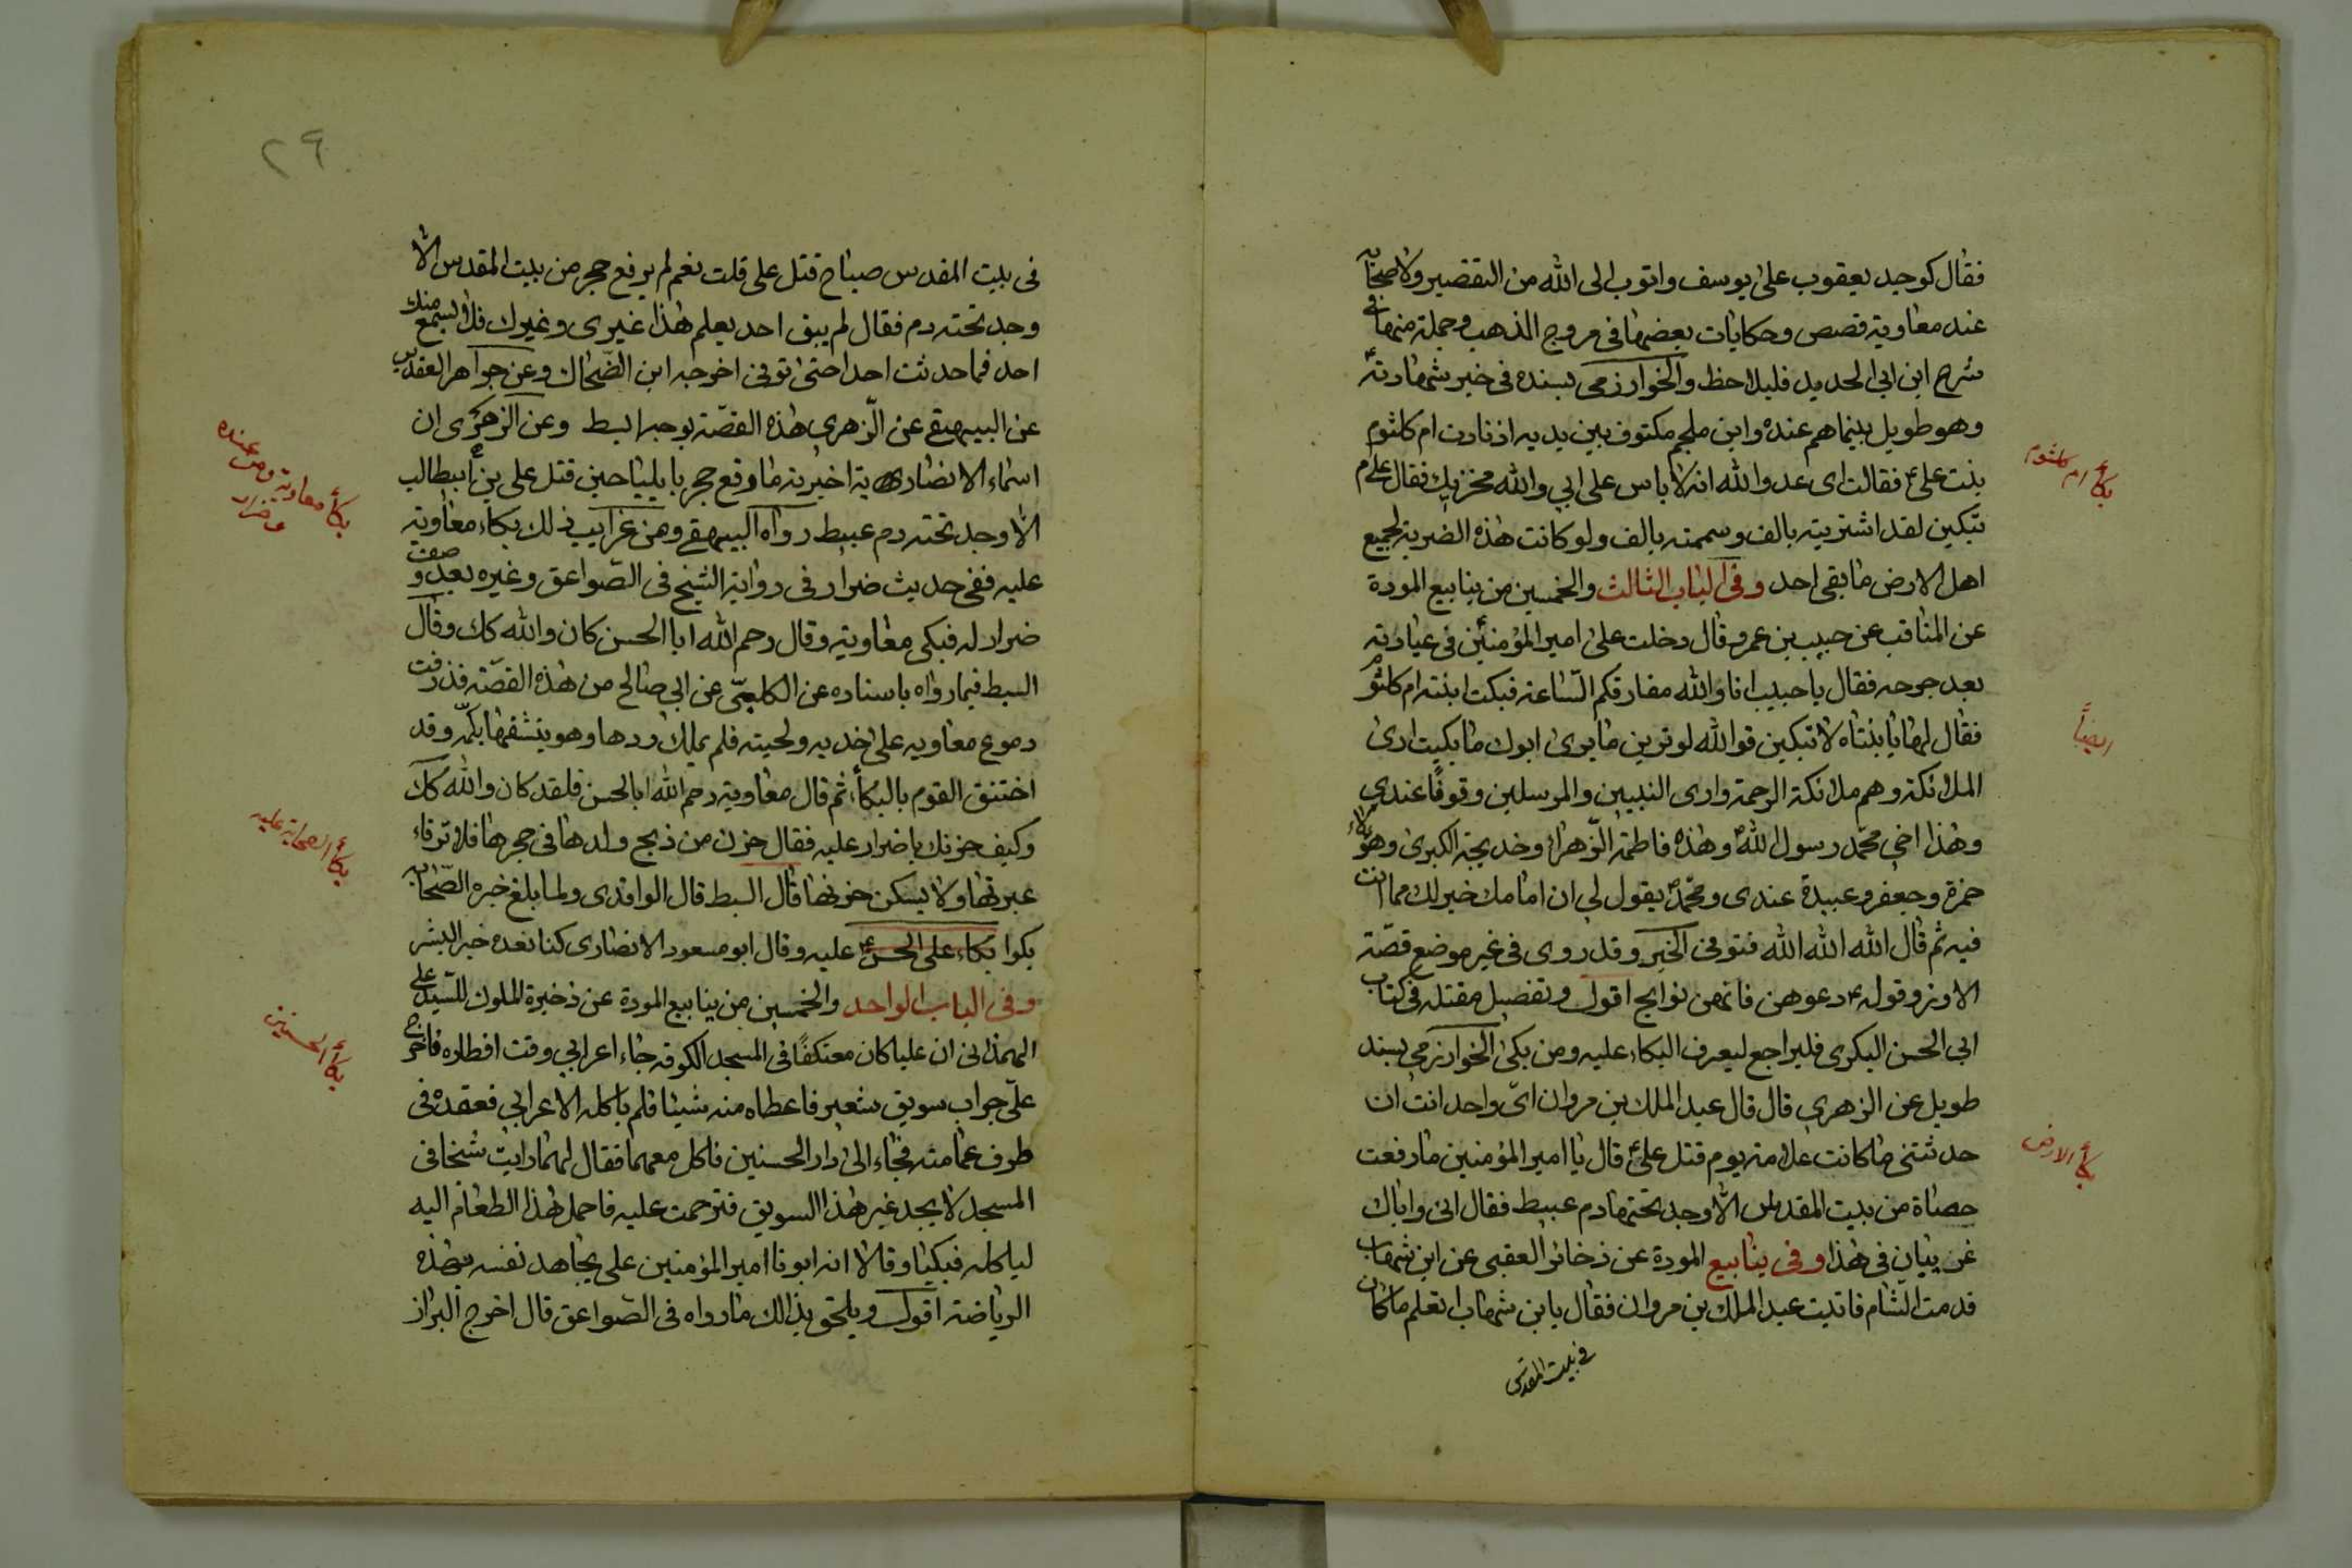 فقال كوجد يعقوب على يوسف واتوب الى الله من التقصير ولاصحابه
عند معاوية قصص وحكايات بعضها فى مروج الذهب وجملة منها فى
شرح ابن ابى الحديد فليلاحظ والخوارزمى بسنده فى خبر شهادته ع
وهو طويل بينما هم عنده وابن ملجم مكتوف بين يديه اذ نادت ام كلثوم
بنت على ع فقالت اى عدو الله انه لا باس على ابى والله مخزيك فقال علام
تبكين لقد اشتريته بالف وسممته بالف ولو كانت هذه الضربة لجميع
اهل الارض ما بقى احد وفى الباب الثالث والخمسين من ينابيع المودة
عن المناقب عن حبيب بن عمرو قال دخلت على امير المؤمنين ع فى عيادته
بعد جرحه فقال يا حبيب انا والله مفارقكم الساعة فبكت ابنته ام كلثوم
فقال لها يا بنتاه لا تبكين فوالله لو ترين ما يرى ابوك ما بكيت ارى
الملائكة وهم ملائكة الرحمة وارى النبيين والمرسلين وقوفًا عندى
وهذا اخى محمد رسول الله وهذه فاطمة الزهراء وخديجة الكبرى وهؤلاء
حمزة وجعفر وعبيدة عندى ومحمد يقول لى ان امامك خير لك مما انت
فيه ثم قال الله الله الله فتوفى الخبر وقد روى فى غير موضع قصّة
الاوز وقوله ع دعوهن فانهن نوايح اقول وتفصيل مقتله فى كتاب
ابى الحسن البكرى فليراجع ليعرف البكاء عليه ومن بكى الخوارزمى بسند
طويل عن الزهرى قال قال عبد الملك بن مروان اىّ واحد انت ان
حدثتنى ما كانت علامة يوم قتل على ع قال يا امير المؤمنين ما رفعت
حصاة من بيت المقدس الا وجد تحتها دم عبيط فقال انى واياك
غريبان فى هذا وفى ينابيع المودة عن ذخائر العقبى عن ابن شهاب
قدمت الشام فاتيت عبد الملك بن مروان فقال يا بن شهاب اتعلم ما كان
فى بيت المقدس
بكاء ام كلثوم
ايضاً
بكاء الارض
٢٩
فى بيت المقدس صباح قتل على قلت نعم لم يرفع حجر من بيت المقدس الا
وجد تحته دم فقال لم يبق احد يعلم هذا غيرى وغيرك فلا يسمع منك
احد فما حدثت احدا حتى توفى اخرجه ابن الضّحاك وعن جواهر العقدين
عن البيهقى عن الزهرى هذه القصّة بوجه ابسط وعن الزهرى ان
اسماء الانصارية اخبرته ما وقع حجر بايليا حين قتل على بن ابيطالب ع
الا وجد تحته دم عبيط رواه البيهقى ومن غرايب ذلك بكاء معاوية
عليه ففى حديث ضرار فى رواية الشيخ فى الصّواعق وغيره بعد وصف
ضرار له فبكى معاوية وقال رحم الله ابا الحسن كان والله كك وقال
السبط فيما رواه باسناده عن الكلبىّ عن ابى صالح من هذه القصّة فذرفت
دموع معاويه على خديه ولحيته فلم يملك ردها وهو ينشفها بكمّه وقد
اختنق القوم بالبكاء ثم قال معاوية رحم الله ابا لحسن فلقد كان والله كك
وكيف حزنك يا ضرار عليه فقال حزن من ذبح ولدها فى حجرها فلا ترقاء
عبرتها ولا يسكن حزنها قال السبط قال الواقدى ولما بلغ خبره الصّحابه
بكوا بكاء على الحسن ع عليه وقال ابو مسعود الانصارى كنا نعده خير البشر
وفى الباب الواحد والخمسين من ينابيع المودة عن ذخيرة الملوك للسّيد على
الهمدانى ان عليا كان معتكفًا فى المسجد الكوفه جاء اعرابى وقت افطاره فاخرج
علىّ جراب سويق شعير فاعطاه منه شيئا فلم ياكله الاعرابى فعقده فى
طرف عمامته فجاء الى دار الحسنين فاكل معهما فقال لهما رايت شيخا فى
المسجد لا يجد غير هذا السويق فترحمت عليه فاحمل هذا الطعام اليه
لياكله فبكيا وقالا انه ابونا امير المؤمنين على يجاهد نفسه بهذه
الرياضة اقول ويلحق بذالك ما رواه فى الصّواعق قال اخرج البزاز
بكاء معاوية ومن عنده
عن ضرار
بكاء الصحابة عليه
بكاء الحسنين